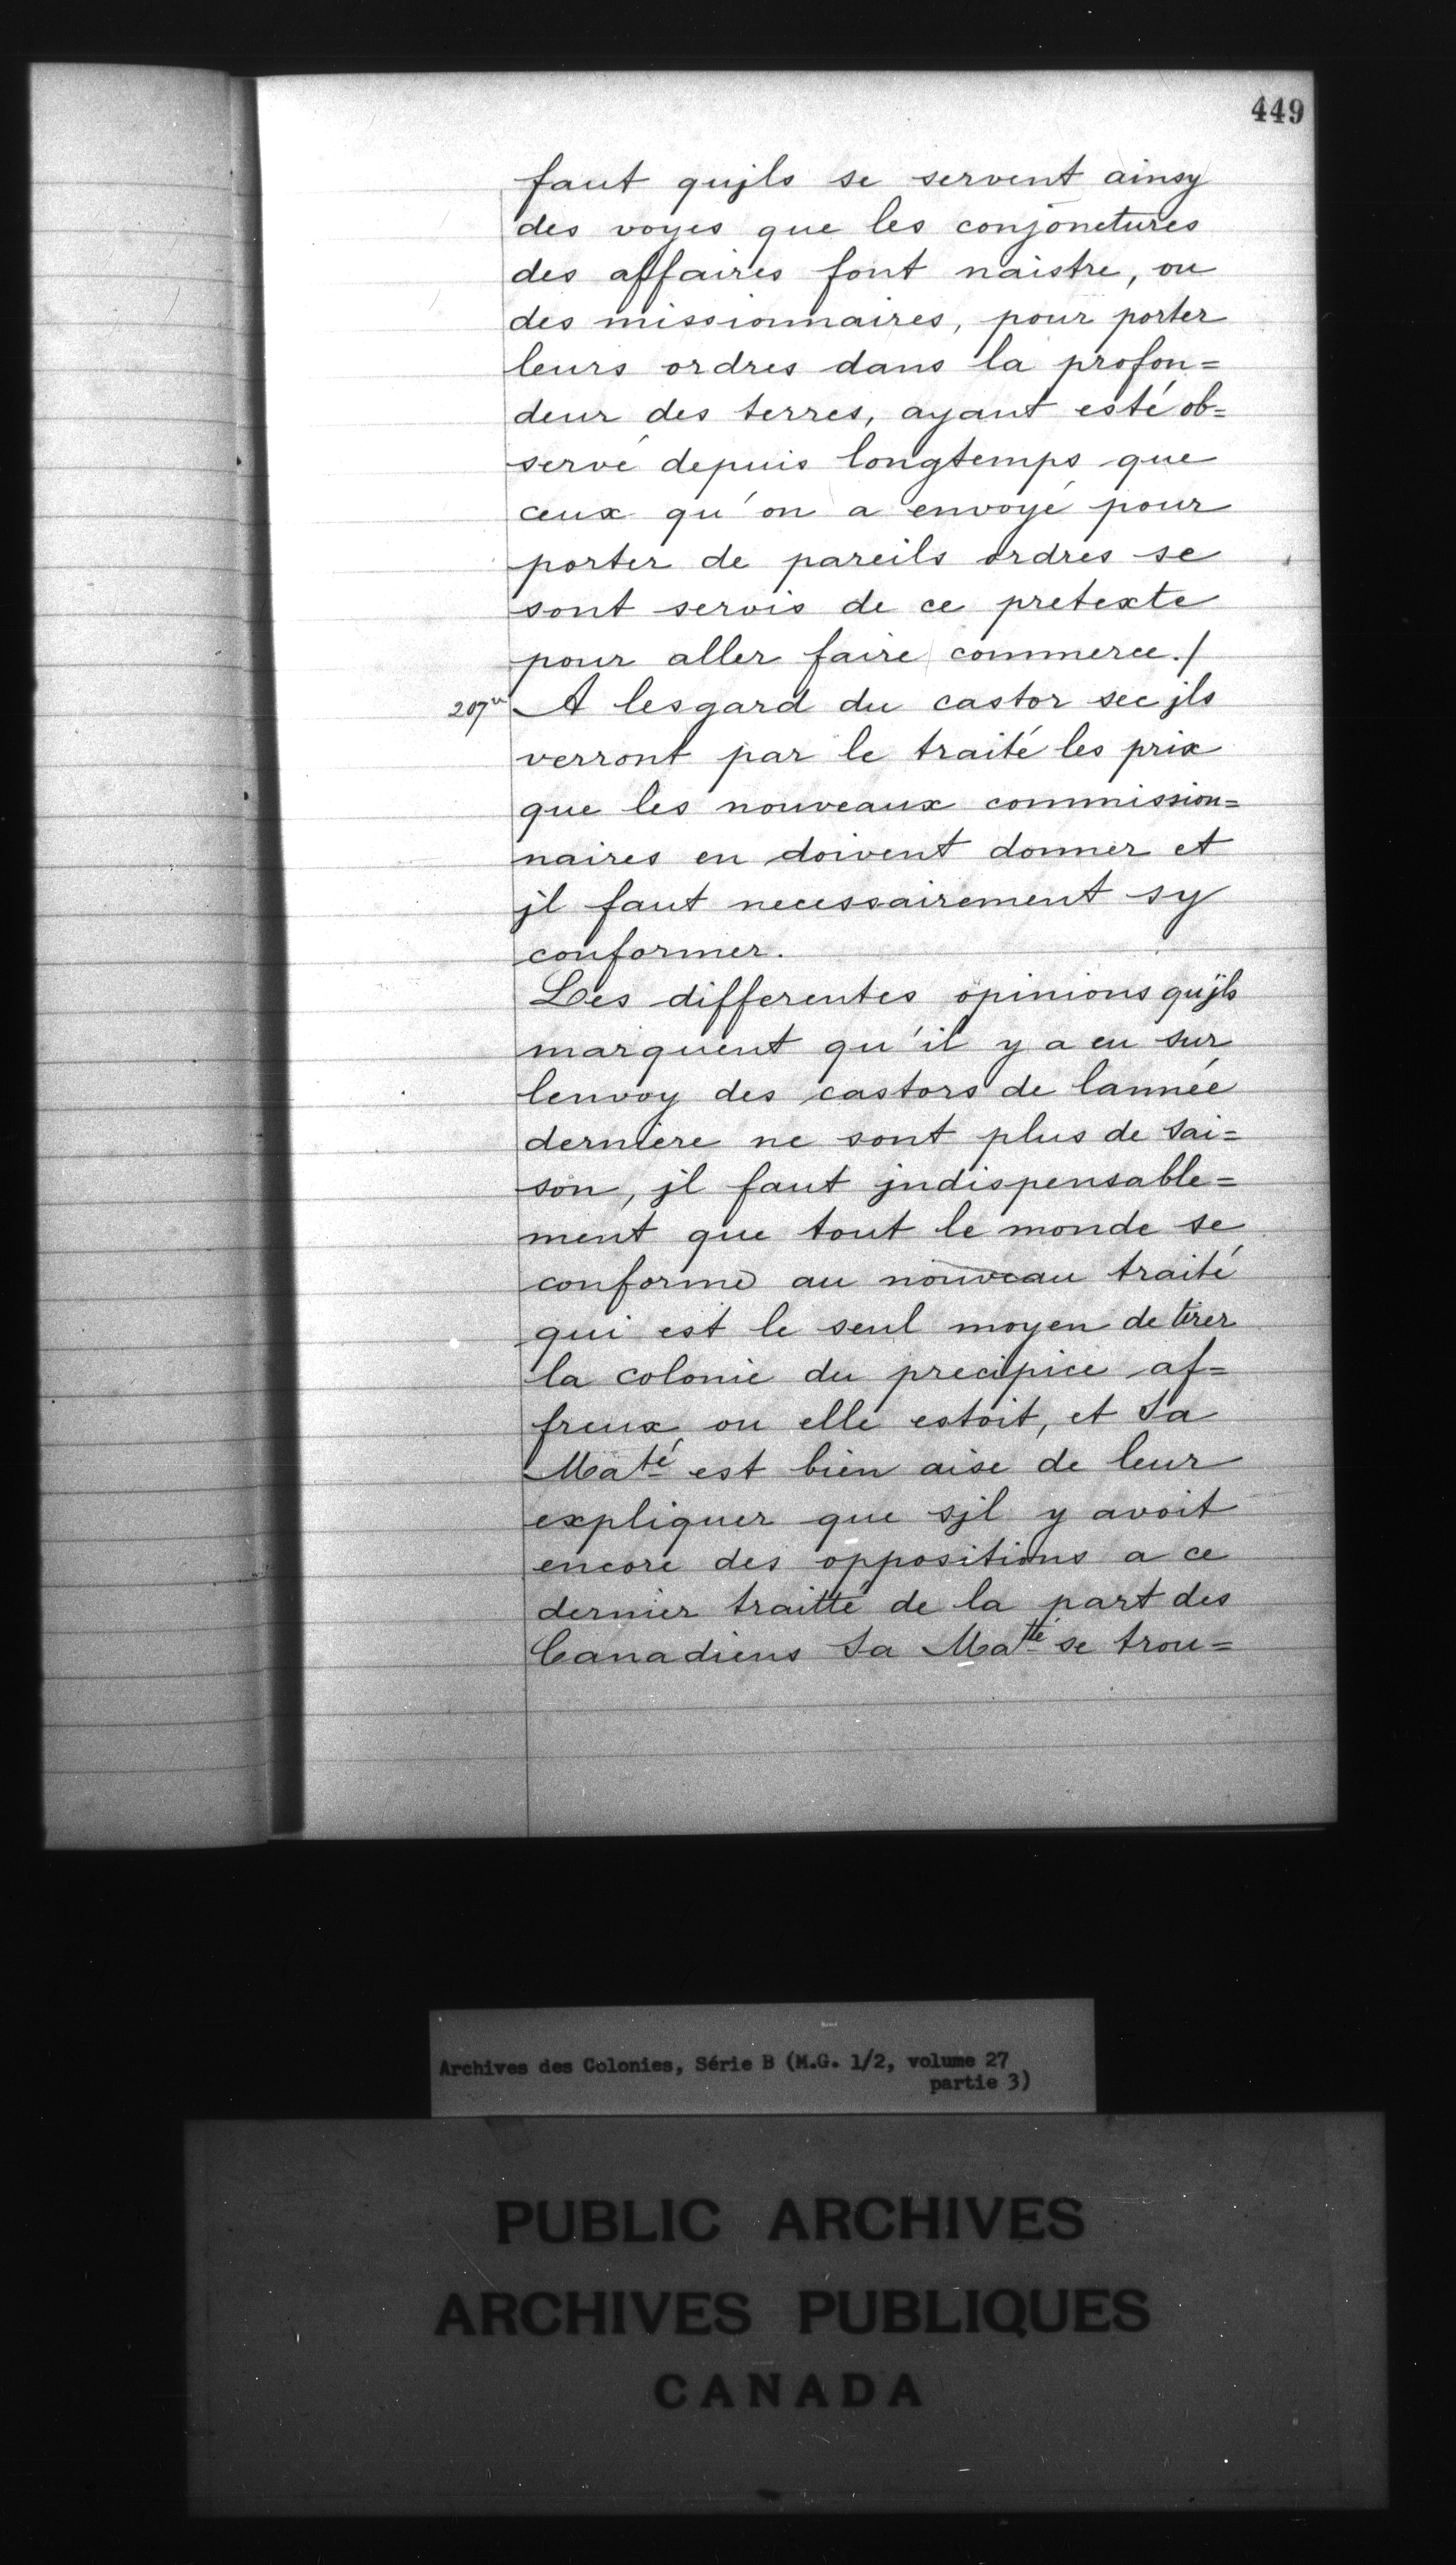 449
faut qujls se servent ainsy
des voyes que les conjonctures
des affaires font naistre, ou
des missionnaires, pour porter
leurs ordres dans la profon=
deur des terres, ayant esté ob=
servé depuis longtemps que
ceux qu'on a envoyé pour
porter de pareils ordres se
sont servis de ce pretexte
pour aller faire commerce./
207 A lesgard du castor sec jls
verront par le traité les prix
que les nouveaux commission=
naires en doivent donner et
jl faut necessairement sy
conformer.
Les differentes opinions qujls
marquent qu'il y a eu sur
lenvoy des castors de lannée
derniere ne sont plus de sai=
son, jl faut jndispensable=
ment que tout le monde se
conforme au nouveau traité
qui est le seul moyen de tirer
la colonie du precipice af=
freux ou elle estoit, et Sa
Maté est bien aise de leur
expliquer que sjl y avoit
encore des oppositions a ce
dernier traitté de la part des
Canadiens Sa Matté se trou=
Archives des Colonies, Série B (M.G. 1/2, volume 27
partie 3)
PUBLIC ARCHIVES
ARCHIVES PUBLIQUES
CANADA